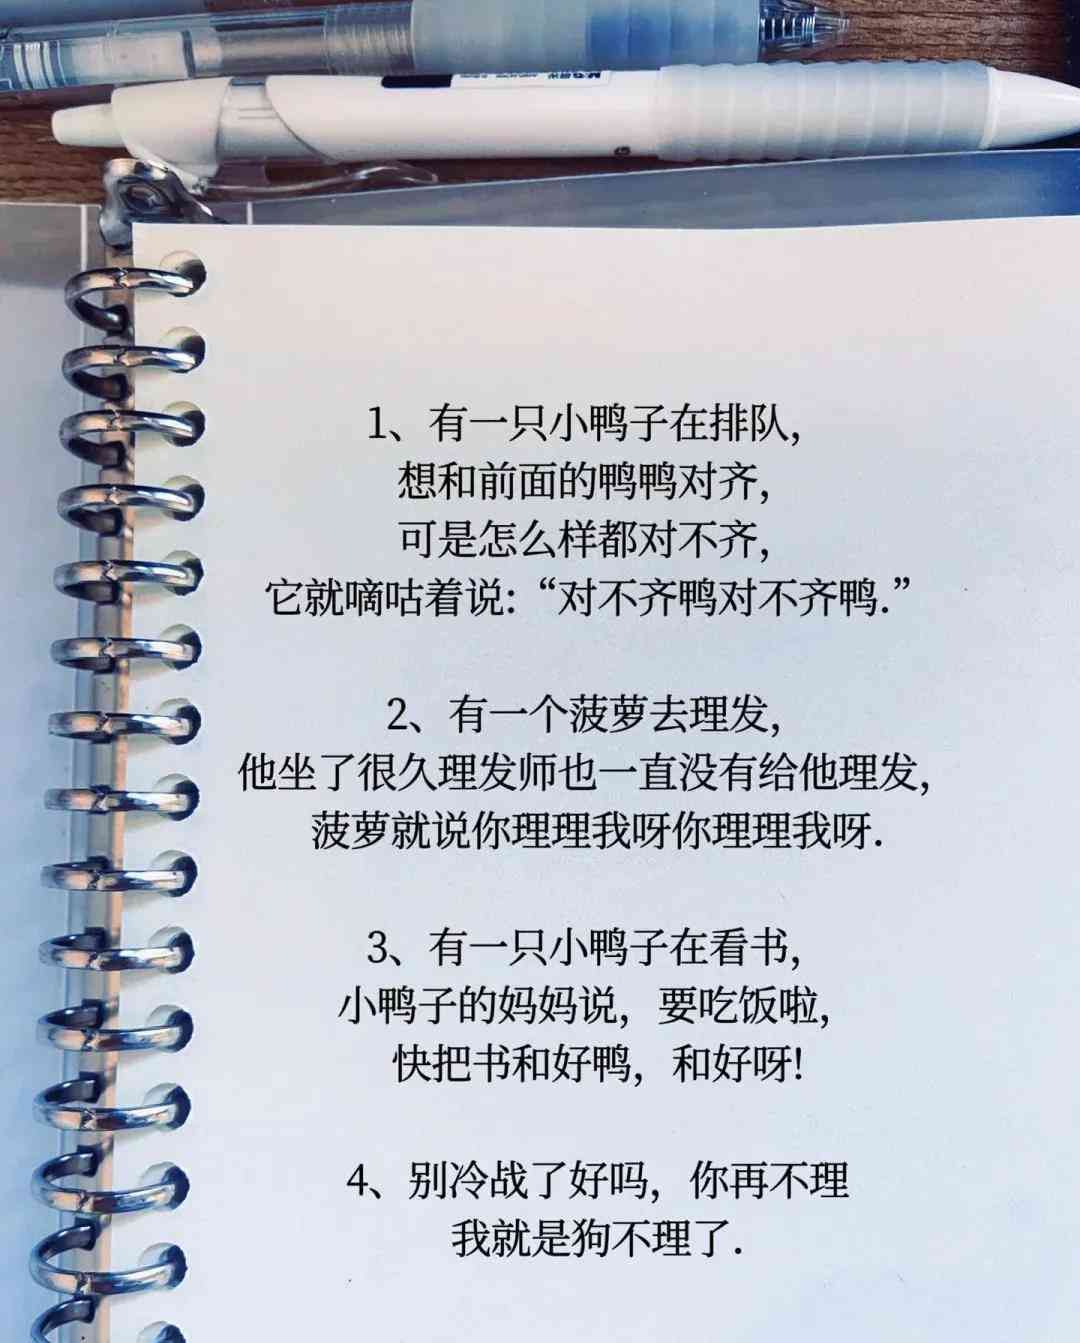 1、有一只小鸭子在排队，
想和前面的鸭鸭对齐，
可是怎么样都对不齐，
它就嘀咕着说:“对不齐鸭对不齐鸭.”
2、有一个菠萝去理发，
他坐了很久理发师也一直没有给他理发，
菠萝就说你理理我呀你理理我呀.
3、有一只小鸭子在看书，
小鸭子的妈妈说，要吃饭啦，
快把书和好鸭，和好呀!
4、别冷战了好吗，你再不理
我就是狗不理了.